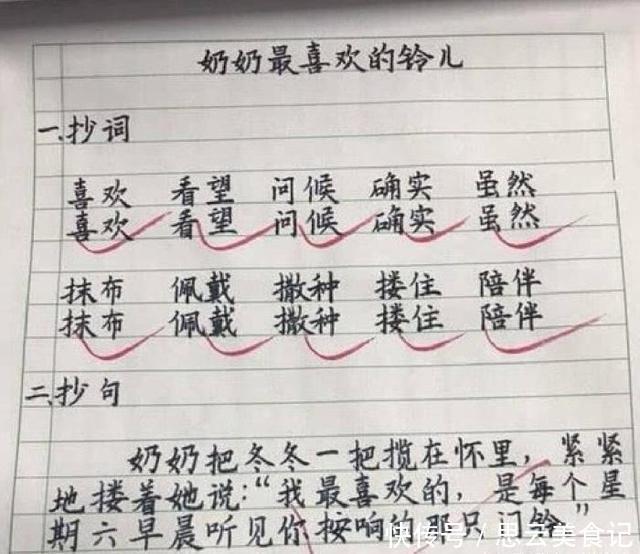 奶奶最喜欢的铃儿
一.抄词
喜欢 看望 问候 确实 虽然
喜欢 看望 问候 确实 虽然
抹布 佩戴 撒种 搂住 陪伴
抹布 佩戴 撒种 搂住 陪伴
二.抄句
奶奶把冬冬一把揽在怀里,紧紧
地搂着她说:“我最喜欢的,是每个星
期六早晨听见你按响的那只门铃”
快传号/思云美食记